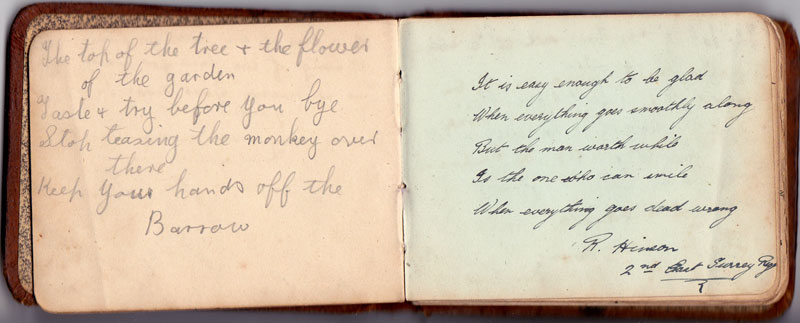 The top of the tree + the flower
of the garden
Taste + try before you bye
Stop teasing the monkey over
there
Keep your hands off the
Barrow
It is easy enough to be glad
When everything goes smoothly along
But the man worth while
Is the one who can smile
When everything goes dead wrong
R. Hinson
2nd East Surrey Rgt